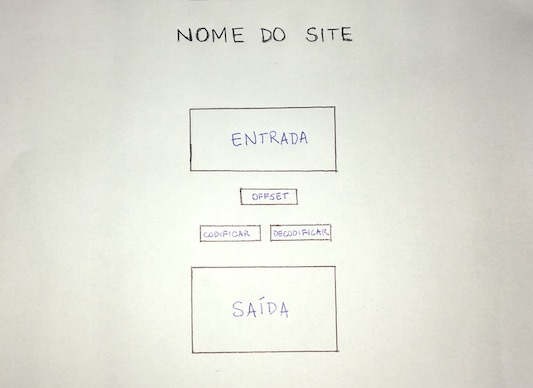 NOME DO SITE
ENTRADA
OFFSET
CODIFICAR DECODIFICAR
SAÍDA